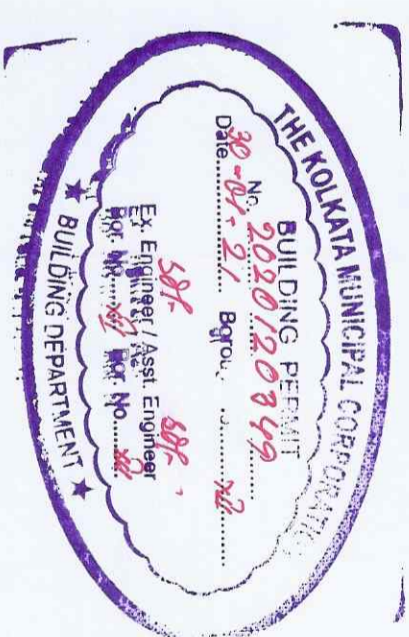 THE KOLKATA MUNICIPAL CORPORATION
BUILDING PERMIT
No. 2020120349
Date 30-01-21 Borou XII
Sd/- Sd/-
Ex. Engineer / Asst. Engineer
Bor. No. Bor. No. XII
★ BUILDING DEPARTMENT ★